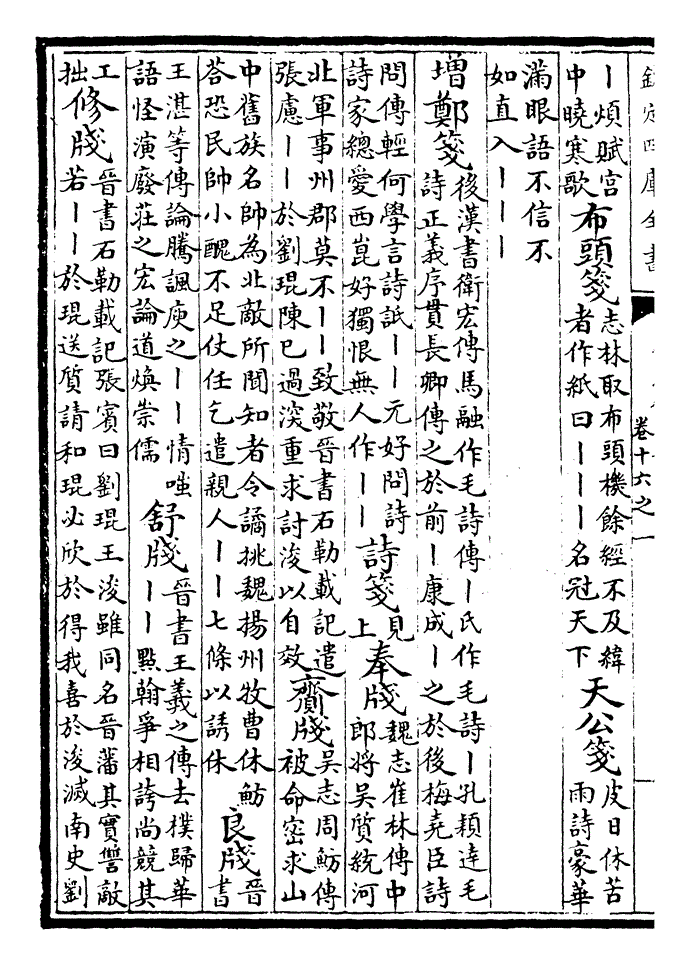 欽定四庫全書
卷十六之一
丨煩賦宮中曉寒歌布頭箋志林取布頭機餘經不及緯者作紙曰丨丨丨名冠天下天公箋皮日休苦雨詩豪華
滿眼語不信不如直入丨丨丨
增鄭箋後漢書衛宏傳馬融作毛詩傳丨氏作毛詩丨孔穎達毛詩正義序貫長卿傳之於前丨康成丨之於後梅堯臣詩
問傳輕何學言詩詆丨丨元好問詩詩家總愛西崑好獨恨無人作丨丨詩箋見上奉牋魏志崔林傳中郎將吳質統河
北軍事州郡莫不丨丨致敬晉書石勒載記遣張慮丨丨於劉琨陳巳過深重求討浚以自效齎牋吳志周魴傳被命密求山
中舊族名帥為北敵所聞知者令譎挑魏揚州牧曹休魴荅恐民帥小醜不足仗任乞遣親人丨丨七條以誘休良牋晉書
王湛等傳論騰諷庾之丨丨情嗤語怪演廢莊之宏論道煥崇儒舒牋晉書王羲之傳去樸歸華丨丨點翰爭相誇尚競其
工拙修牋晉書石勒載記張賓曰劉琨王浚雖同名晉藩其實讐敵若丨丨於琨送質請和琨必欣於得我喜於浚滅南史劉